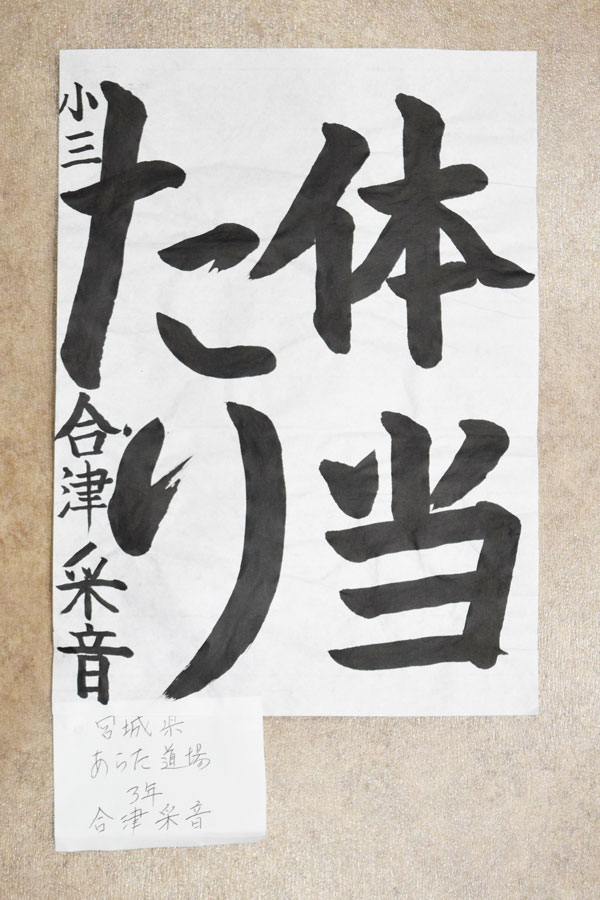 体当
たり
小三 合津采音
宮城県
あらた道場
3年
合津采音